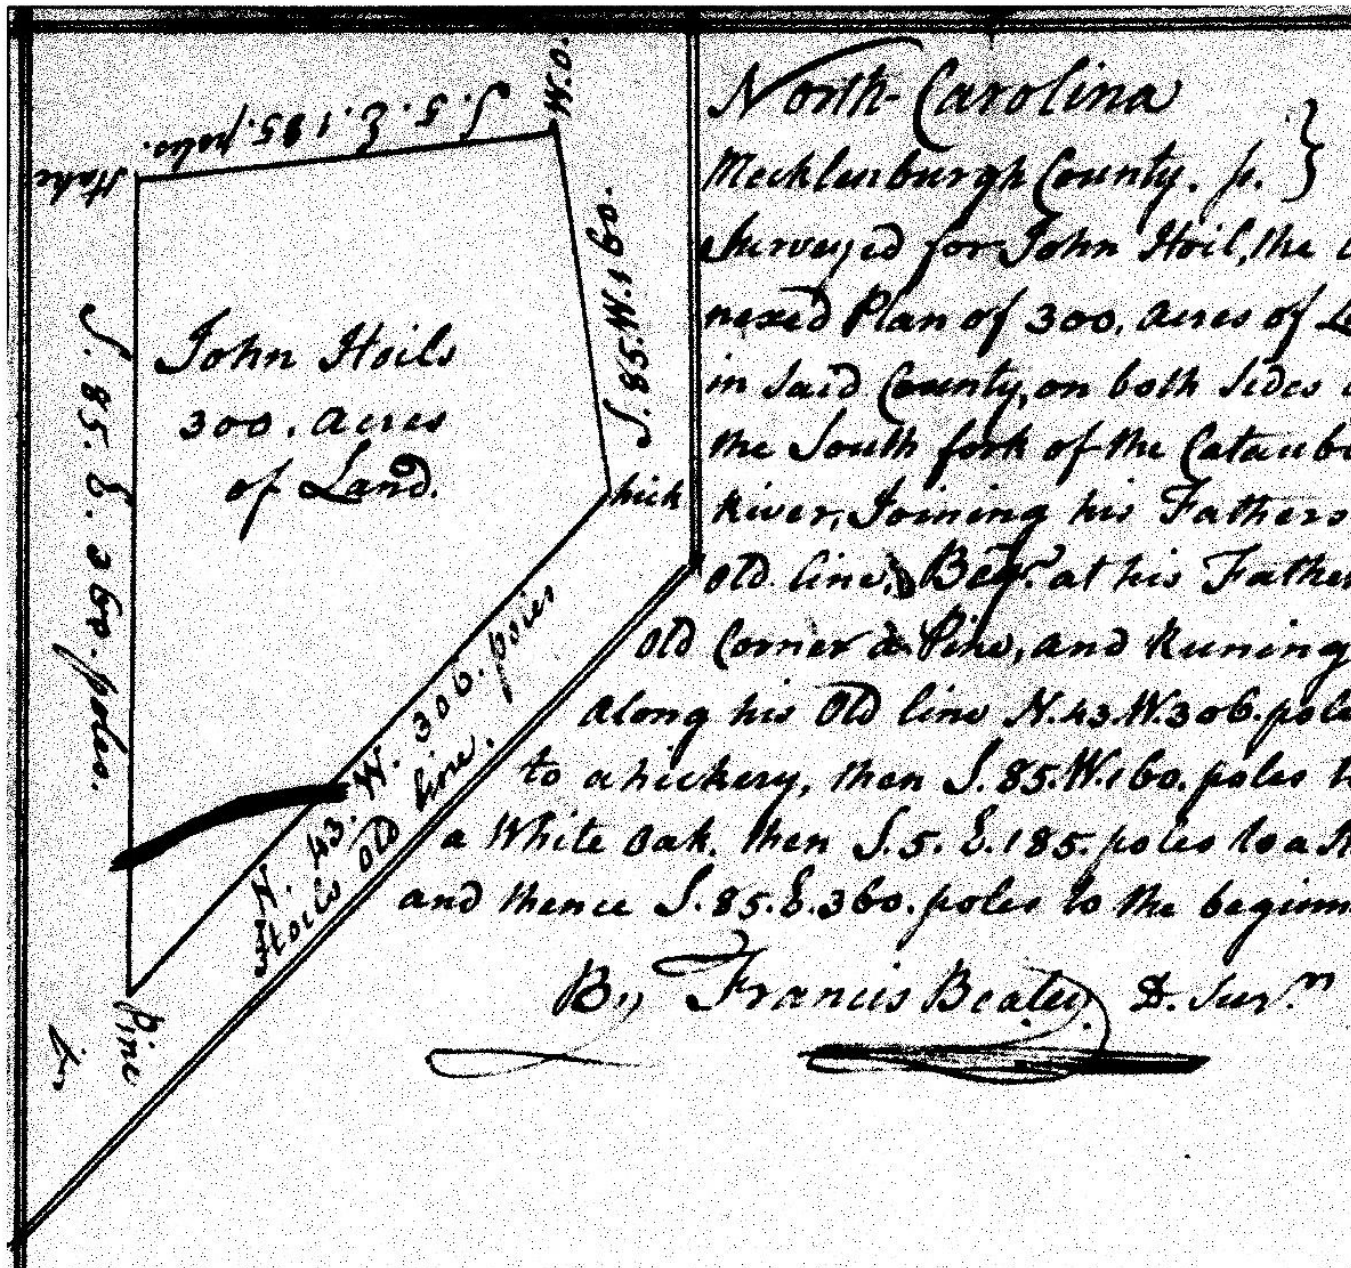 W.O.
S. 5. E. 185. poles.
Stake
S. 85. W. 160.
hick
S. 85. E. 360. poles.
John Hoils
300. acres
of Land.
N. 43. W. 306. poles
Hoils old line.
pine
North Carolina
Mecklenburgh County. ss. }
Surveyed for John Hoil, the
nexed Plan of 300. acres of
in said County, on both sides
the South fork of the Cataub
River, Joining his Fathers
old line. Beg. at his Father
old Corner a Pine, and Runing
along his Old line N. 43. W. 306. pole
to a hickery, then S. 85. W. 160. poles t
a White oak. then S. 5. E. 185. poles to a
and thence S. 85. E. 360. poles to the beginn
By Francis Beaty. D. Sur.